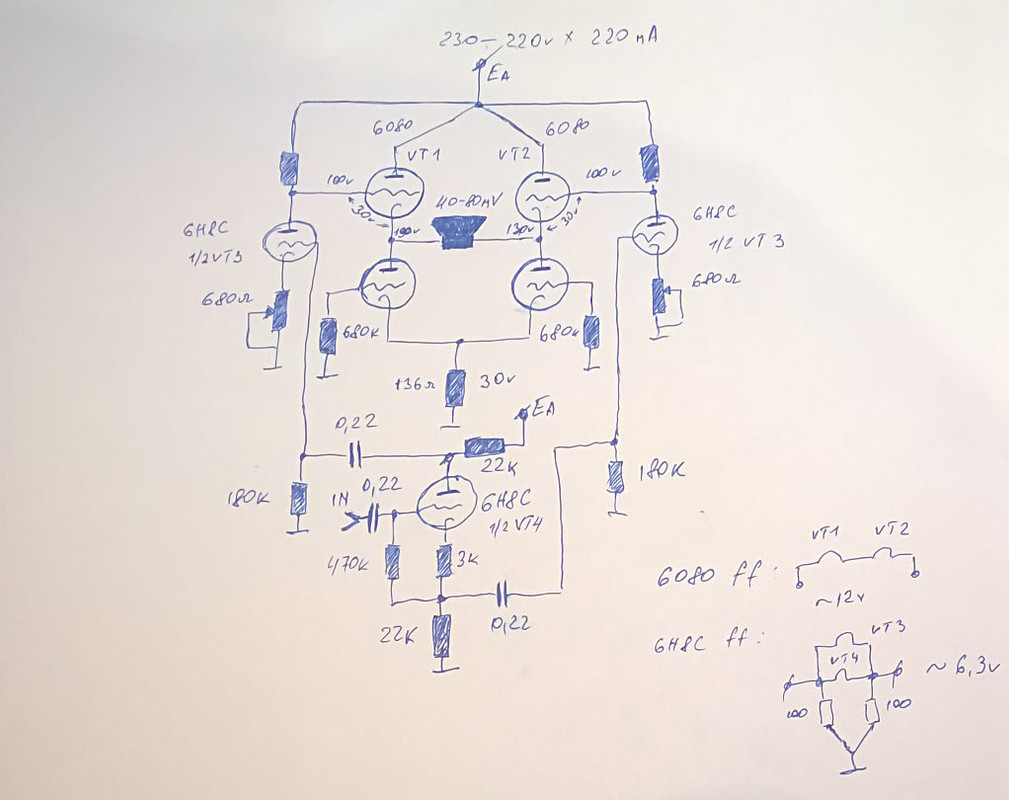 230 – 220v × 220 mA
EA
6080
6080
VT1
VT2
100v
100v
30v
30v
40-80mV
130v
6H8C
1/2VT3
6H8C
1/2 VT3
680Ω
680Ω
680K
680K
136Ω
30v
EA
0,22
22K
180K
180K
IN
0,22
6H8C
1/2 VT4
470K
3K
22K
0,22
VT1
VT2
6080 ff:
~12v
6H8C ff:
VT3
VT4
~6,3v
100
100